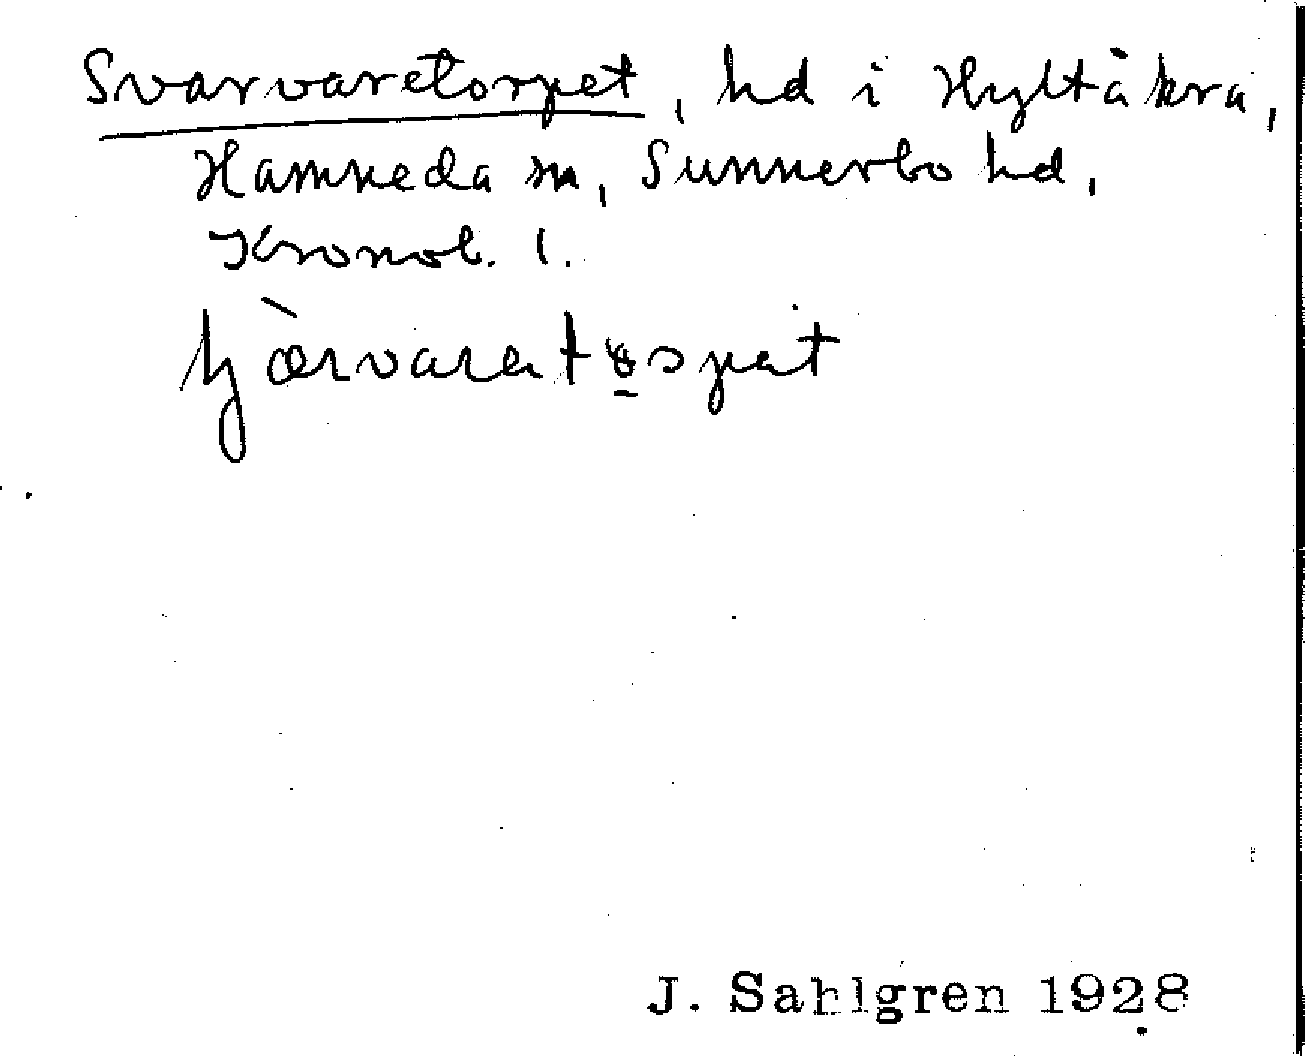 Svarvaretorpet, hd i Hyltåkra,
Hamneda sn, Sunnerbo hd,
Kronob. l.
J. Sahlgren 1928